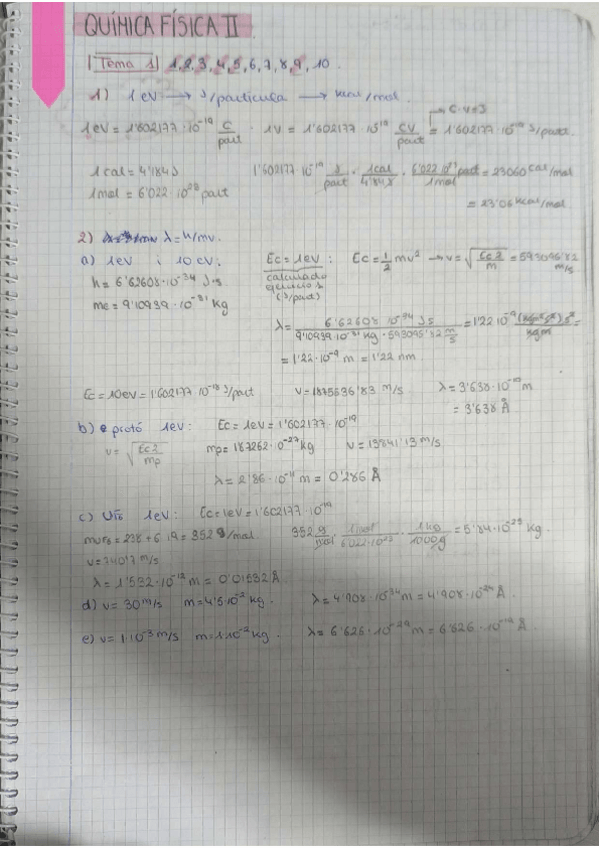 QUÍMICA FÍSICA II
Tema 1 1, 2, 3, 4, 5, 6, 7, 8, 9, 10.
1) 1 eV → J/partícula → kcal/mol.
C·V=J
1eV = 1'602177·10⁻¹⁹ C/part · 1V = 1'602177·10⁻¹⁹ CV/part = 1'602177·10⁻¹⁹ J/part.
1 cal = 4'184J 1'602177·10⁻¹⁹ J/part · 1cal/4'184J · 6'022·10²³ part/1mol = 23060 cal/mol
1mol = 6'022·10²³ part = 23'06 kcal/mol
2) λ = h/mv.
a) 1eV i 10 eV. Ec = 1eV: Ec = 1/2 mv² → v = √(Ec·2/m) = 593095'82 m/s
h = 6'62608·10⁻³⁴ J·s calculado ejercicio 1 (J/part)
me = 9'10939·10⁻³¹ kg
λ = 6'62608·10⁻³⁴ Js / 9'10939·10⁻³¹ kg · 593095'82 m/s = 1'22·10⁻⁹
= 1'22·10⁻⁹ m = 1'22 nm
Ec = 10eV = 1'602177·10⁻¹⁸ J/part v = 1875536'83 m/s λ = 3'638·10⁻¹⁰ m
= 3'638 Å
b) protó 1eV: Ec = 1eV = 1'602177·10⁻¹⁹
v = √(Ec·2/mp) mp = 1'67262·10⁻²⁷ kg v = 13841'13 m/s
λ = 2'86·10⁻¹¹ m = 0'286 Å
c) UF₆ 1eV: Ec = 1eV = 1'602177·10⁻¹⁹
mUF₆ = 238 + 6·19 = 352 g/mol. 352 g/mol · 1mol/6'022·10²³ · 1kg/1000g = 5'84·10⁻²⁵ kg.
v = 740'7 m/s
λ = 1'532·10⁻¹² m = 0'01532 Å
d) v = 30 m/s m = 4'5·10⁻² kg. λ = 4'908·10⁻³⁴ m = 4'908·10⁻²⁴ Å.
e) v = 1·10⁻³ m/s m = 1·10⁻² kg. λ = 6'626·10⁻²⁹ m = 6'626·10⁻¹⁹ Å.